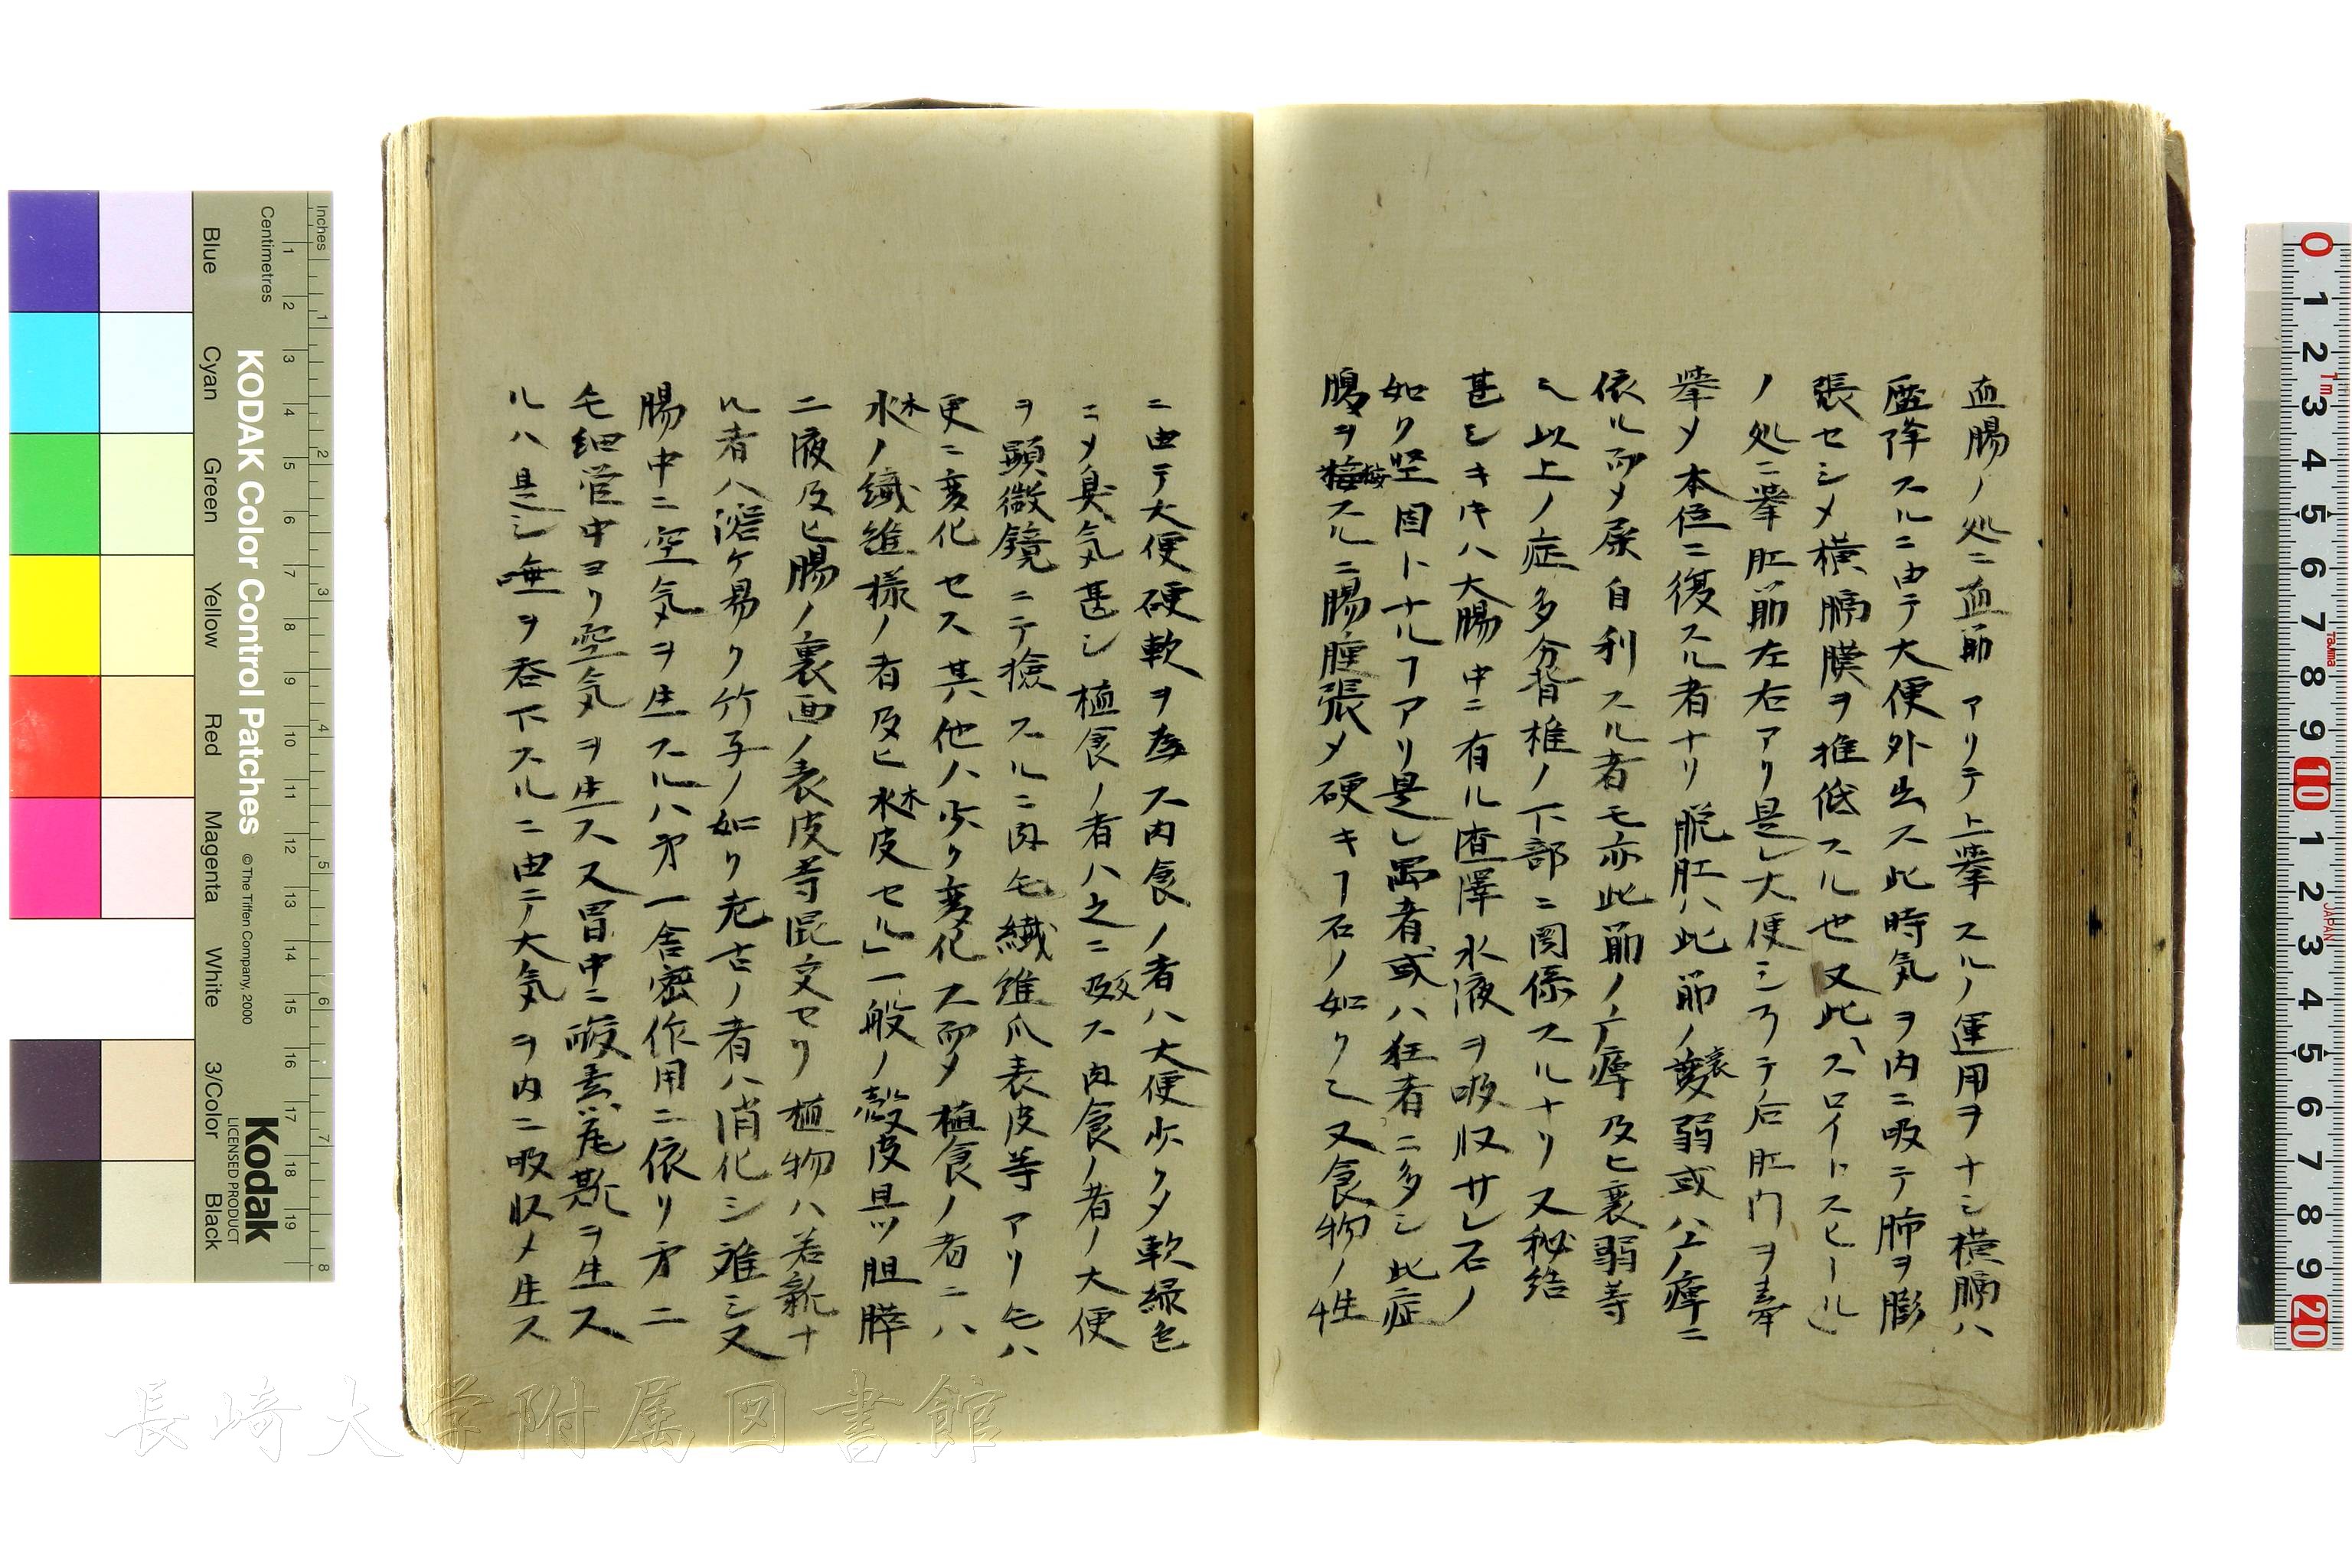 直腸ノ処ニ直筋アリテ上挙スルノ運用ヲナシ横膈ハ
壓降スルニ由テ大便外出ス此時気ヲ内ニ吸テ肺ヲ膨
張セシメ横膈膜ヲ推低スル也又此スロイトスヒール
ノ処ニ挙肛筋左右アリ是レ大便シ了テ后肛門ヲ牽
挙メ本位ニ復スル者ナリ脱肛ハ此筋ノ衰弱或ハ上ノ痺ニ
依ル而メ尿自利スル者モ亦此筋ノ痺及ヒ衰弱等
以上ノ症多分脊椎ノ下部ニ関係スルナリ又秘結
甚シキハ大腸中ニ有ル渣滓水液ヲ吸収サレ石ノ
如ク堅固トナルヿアリ是レ者或ハ狂者ニ多シ此症
腹ヲ按スルニ腸腫張メ硬キヿ石ノ如シ又食物ノ性
ニ由テ大便硬軟ヲ為ス肉食ノ者ハ大便少クメ軟緑色
ニメ臭気甚シ植食ノ者ハ之ニ反ス肉食ノ者ノ大便
ヲ顕微鏡ニテ撿スルニ肉毛繊維爪表皮等アリ毛ハ
更ニ変化セス其他ハ少ク変化ス而メ植食ノ者ニハ
木ノ繊維様ノ者及ヒ木皮セル一般ノ殻皮且ツ胆膵
二液及ヒ腸ノ裏面ノ表皮等混交セリ植物ハ若新ナ
ル者ハ溶ケ易ク竹子ノ如ク老古ノ者ハ消化シ難シ又
腸中ニ空気ヲ生スルハ第一舎密作用ニ依リ第二
毛細管中ヨリ空気ヲ生ス又胃中ニ酸素瓦斯ヲ生ス
ルハ是レ唾ヲ呑下スルニ由テ大気ヲ内ニ吸収メ生ス
Inches
Centimetres
KODAK Color Control Patches
© The Tiffen Company, 2000
Kodak
LICENSED PRODUCT
Blue
Cyan
Green
Yellow
Red
Magenta
White
3/Color
Black
長崎大学附属図書館